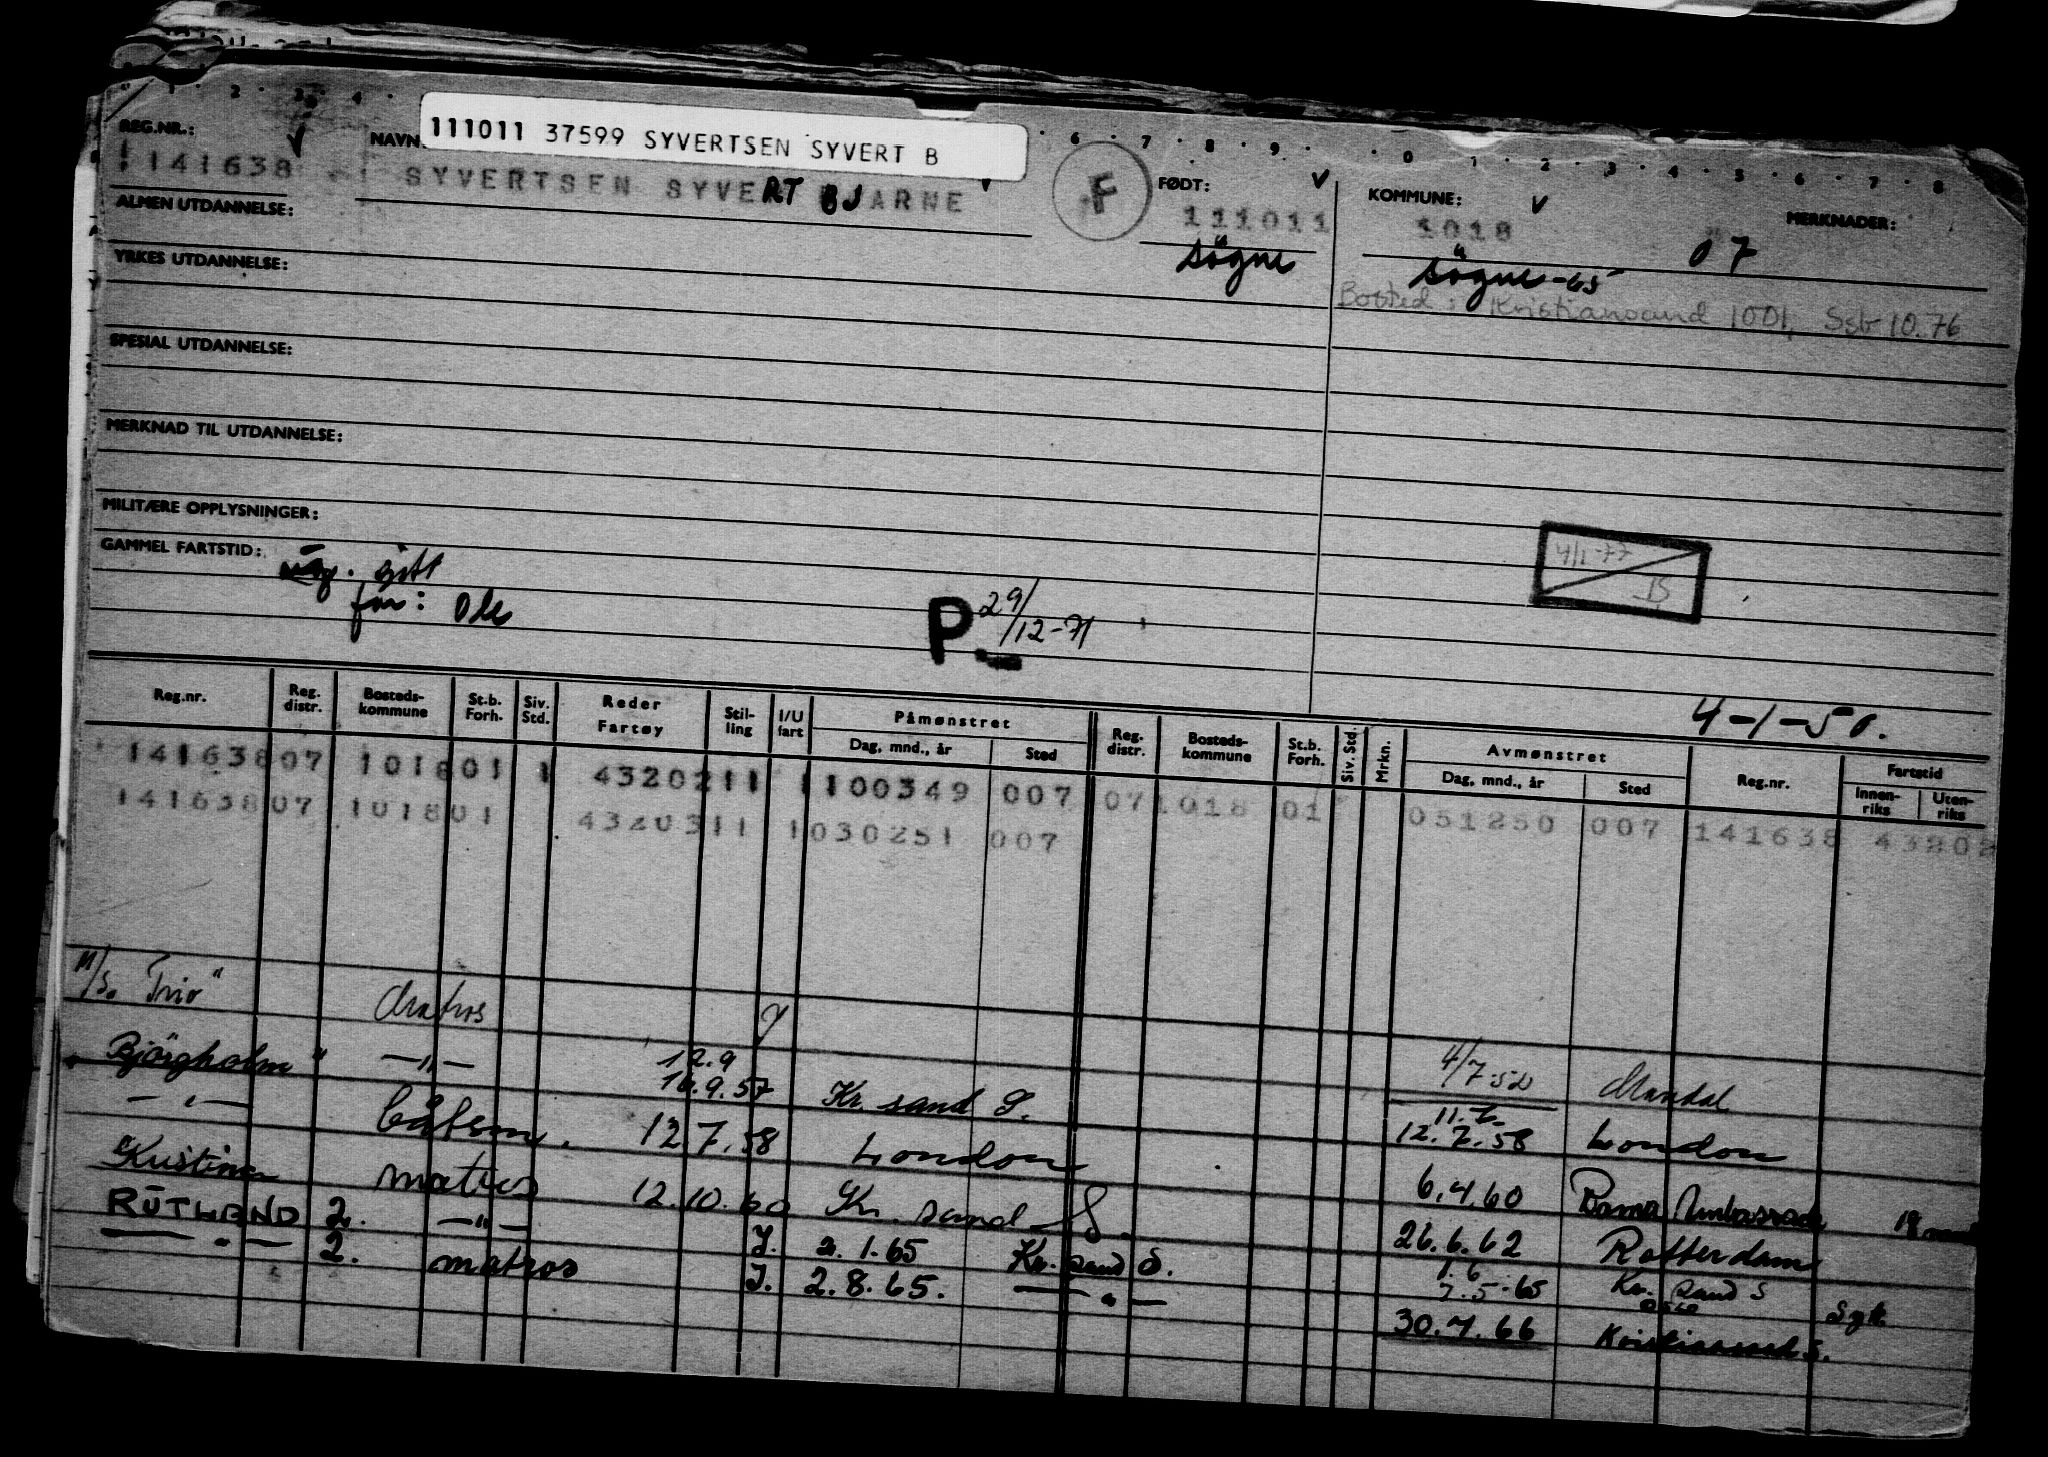 1 2 3 4 6 7 8 9 0 1 2 3 4 5 6 7 8
REG.NR.: NAVN: 111011 37599 SYVERTSEN SYVERT B
141638 SYVERTSEN SYVERT BJARNE F FØDT: 111011 KOMMUNE: 1018 MERKNADER:
søgne søgne-65 07
ALMEN UTDANNELSE:
Bosted: Kristiansand 1001, Ssb 10.76
YRKES UTDANNELSE:
SPESIAL UTDANNELSE:
MERKNAD TIL UTDANNELSE:
MILITÆRE OPPLYSNINGER:
GAMMEL FARTSTID: gift
far: Ole
P. 29/12-71
4/1-77
4-1-50.
Reg.nr. Reg. distr. Bosteds-kommune St.b. Forh. Siv. Std. Reder Fartøy Stil-ling I/U fart Påmønstret Dag, mnd., år Sted Reg. distr. Bosteds-kommune St.b. Forh. Siv. Std. Mrkn. Avmønstret Dag, mnd., år Sted Reg.nr. Fartstid Innen-riks Uten-riks
141638 07 1018 01 1 43202 11 1 100349 007 07 1018 01 051250 007 141638 43202
141638 07 1018 01 43203 11 1 030251 007
M/S. "Trio" Matros 4/7-52 Mandal
Bjørgholm" —"— 12.9 16.9.57 Kr. sand S. 12.7.58 London
—"— båtsm. 12.7.58 London 6.4.60
"Kristina matros 12.10.60 Kr. sand S. 26.6.62 Rotterdam
RUTLAND 2. —"— I. 2.1.65 Kr. sand S. Kr. sand S
—"— 2. matros I. 2.8.65. —"— 30.4.66 Kristiansand S.